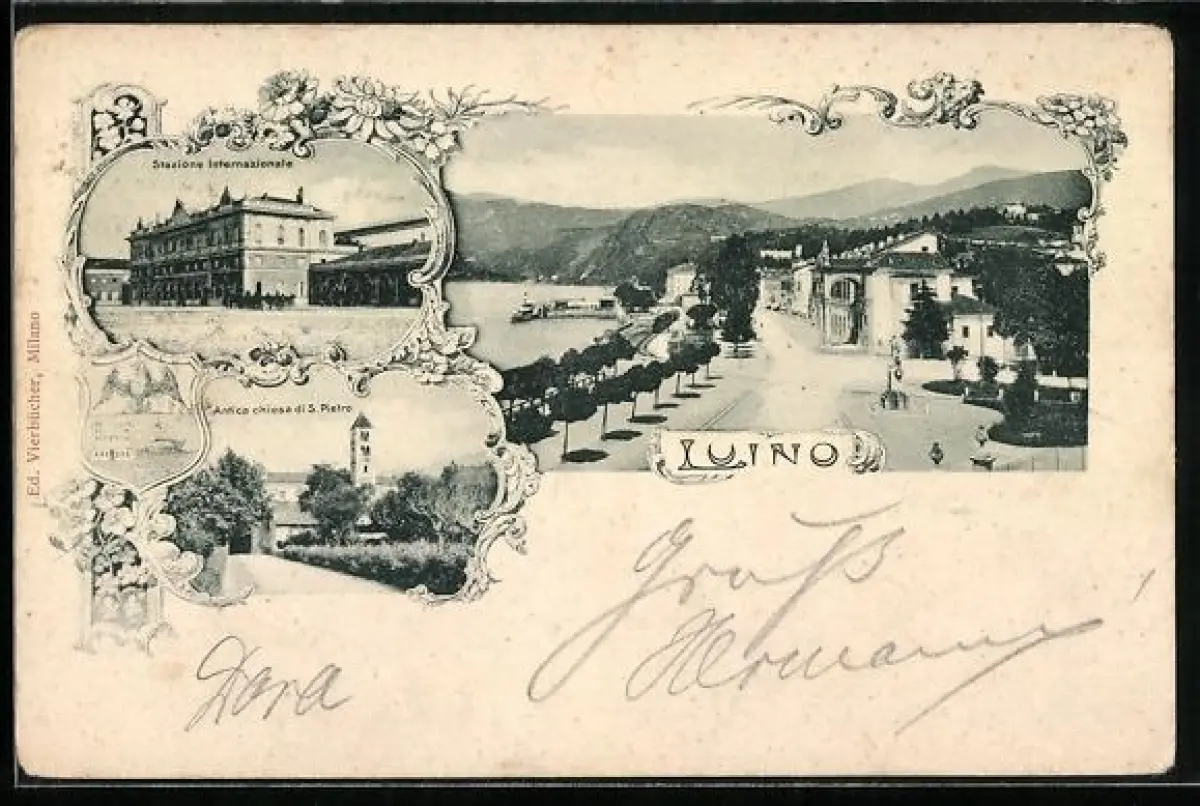 Stazione Internazionale
Antica chiesa di S. Pietro
LUINO
Ed. Vierbücher, Milano
Gruß
Hermann
Dora